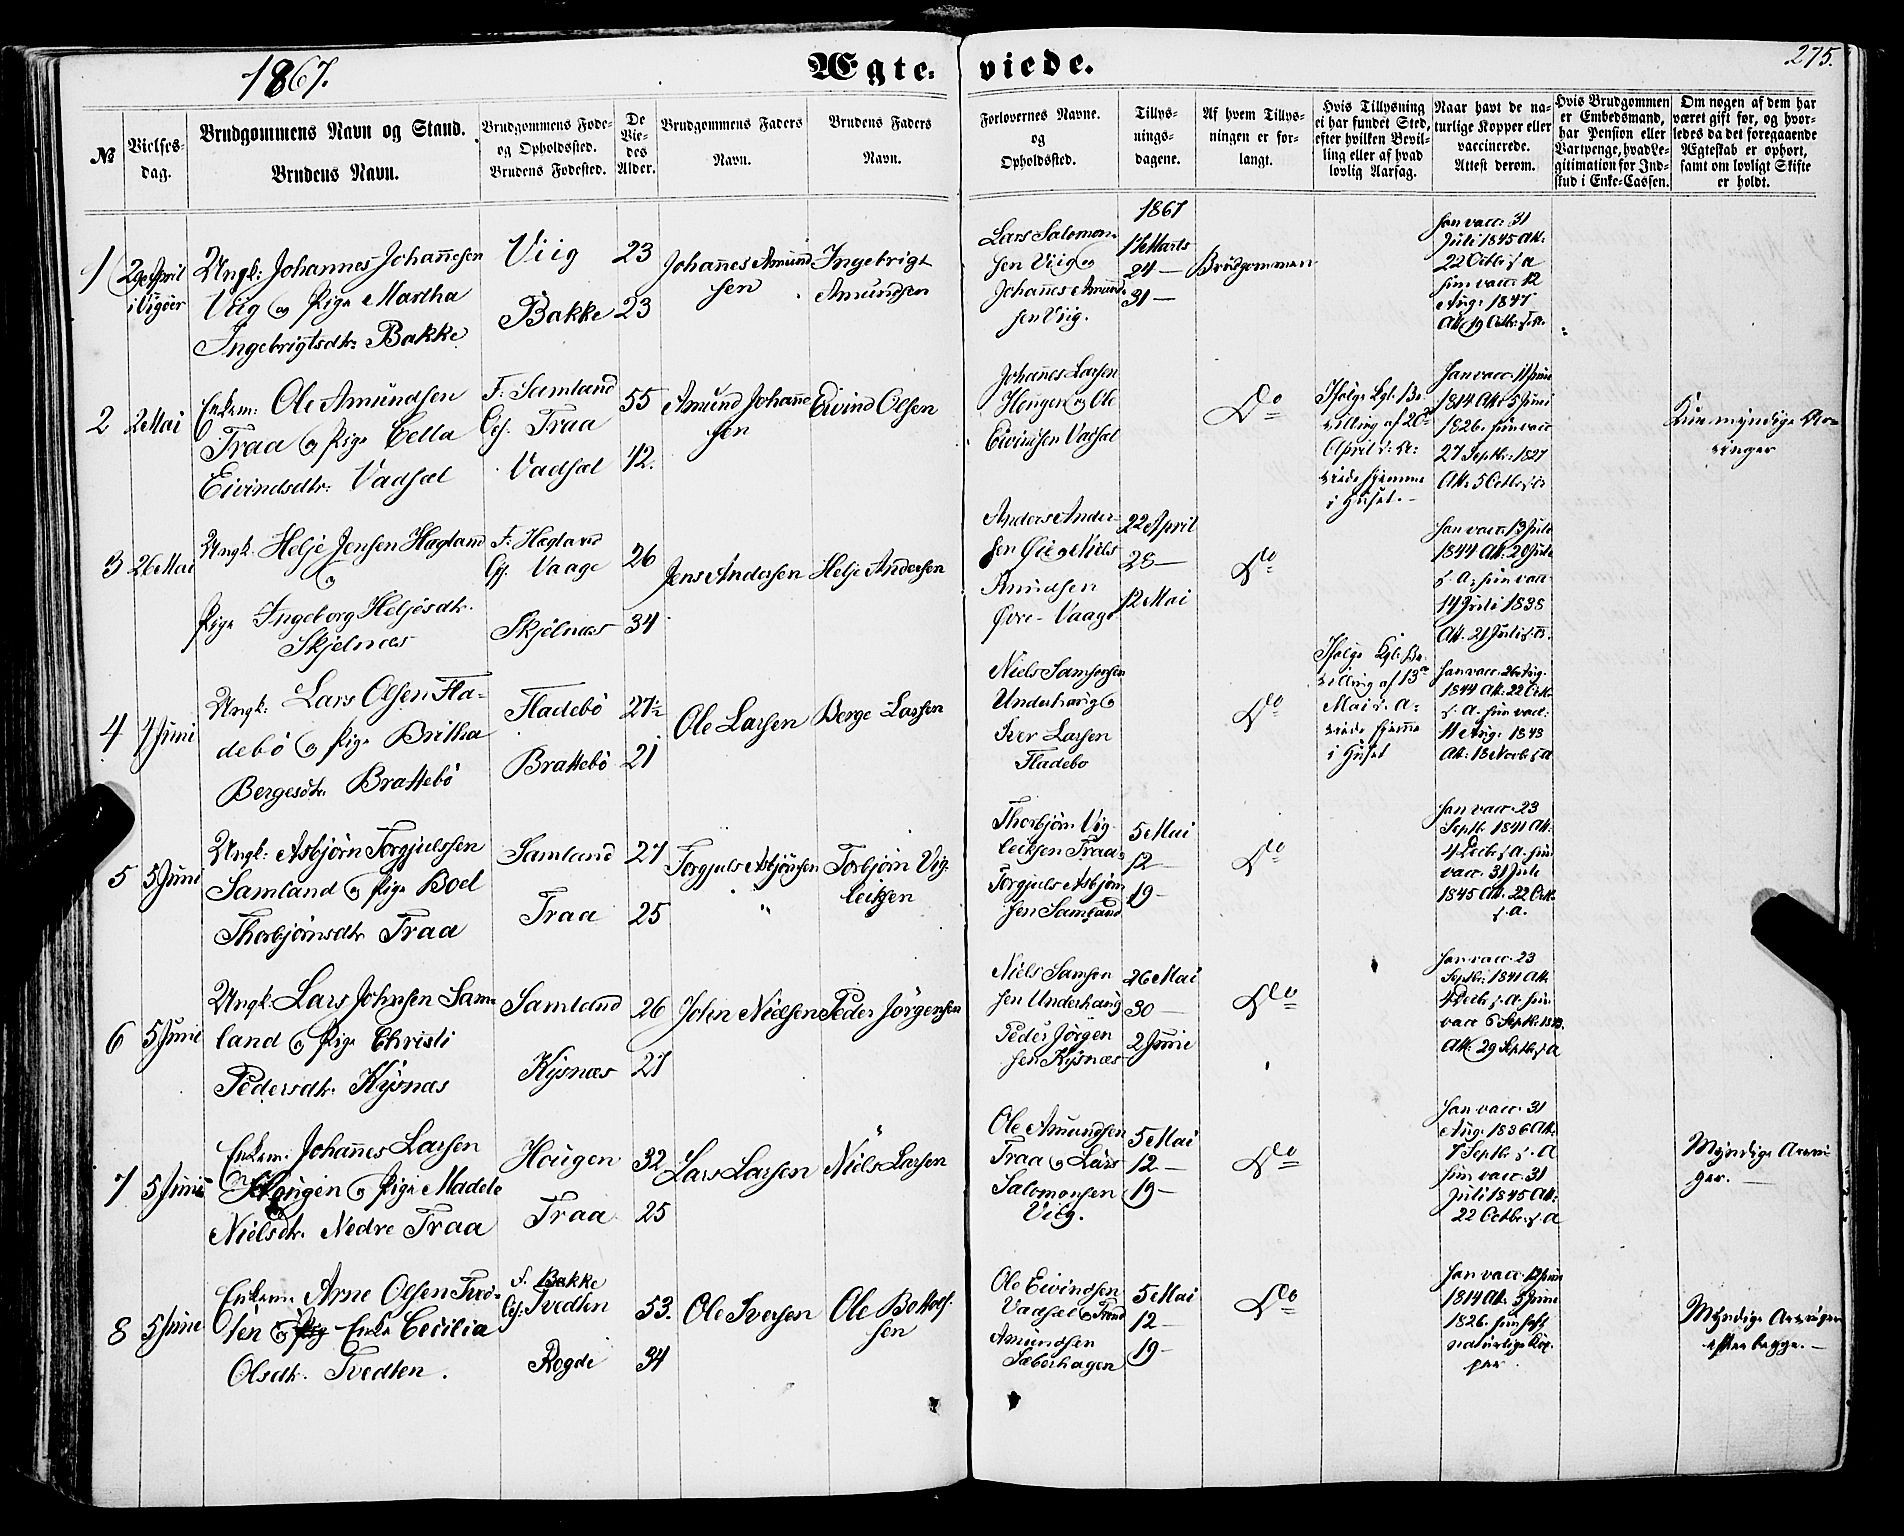 1867.
Ægte-
viede.
275.
№
Vielses-
dag.
Brudgommens Navn og Stand.
Brudens Navn.
Brudgommens Føde-
og Opholdssted.
Brudens Fødested.
De
Vie-
des
Alder.
Brudgommens Faders
Navn.
Brudens Faders
Navn.
Forlovernes Navne.
og
Opholdssted.
Tillys-
nings-
dagene.
Af hvem Tillys-
ningen er for-
langt.
Hvis Tillysning
ei har fundet Sted,
efter hvilken Bevil-
ling eller af hvad
lovlig Aarsag.
Naar havt de na-
turlige Kopper eller
vaccinerede.
Attest derom.
Hvis Brudgommen
er Embedsmand,
har Pension eller
Vartpenge, hvad Le-
gitimation for Ind-
skud i Enke-Cassen.
Om nogen af dem har
været gift før, og hvor-
ledes da det foregaaende
Ægteskab er ophørt,
samt om lovligt Skifte
er holdt.
1
April
i Vigøer
Ungk: Johannes Johannesen
Viig og Pige Martha
Ingebrigtsdtr: Bakke
Viig
Bakke
23
23
Johannes Amund
sen
Ingebrigt
Amundsen
Lars Salomon-
sen Viig og
Johannes Amund-
sen Viig.
1867
17 Marts
24 —
31 —
Brudgommen
han vacc: 31
Juli 1845 Att:
22 Octbr s. a
hun vacc: 12
Aug: 1847
Att 19 Octbr: s. a.
2
2 Mai
Enkem: Ole Amundsen
Traa og Pige Cella
Eivindsdtr: Vadsel
F: Samland
O: Traa
Vadsel
55
42.
Amund Johanne
sen
Eivind Olsen
Johannes Larsen
Hougen og Ole
Eivindsen Vadsel
Do
Ifølge Kgl: Be-
villing af 20de
April d: A:
viede hjemme
i Huset. —
han vacc: 11 Juni
1814 Att: 5 Juni
1826. hun vacc
27 Septbr: 1827
Att: 5 Octbr s. a
Kun myndige Ar-
vinger
3
26 Mai
Ungk. Helje Jensen Hagland
og
Pige Ingeborg Heljesdtr.
Skjelnæs
F: Hagland
O: Vaage
Skjelnæs
26
34
Jens Andersen
Helje Andersen
Anders Ander-
sen Øie og Niels
Amundsen
Øvre-Vaage
22 April
28 —
12 Mai
Do
han vacc: 13 Juli
1844 Att: 20 Juli
s. a: hun vacc
14 Juli 1838
Att. 21 Juli s. a.
4
4 Juni
Ungk: Lars Olsen Fla-
debø og Pige Britha
Bergesdtr. Brattebø
Fladebø
Brattebø
27½
21
Ole Larsen
Berge Larsen
Niels Samsonsen
Underhaug og
Iver Larsen
Fladebø
Do
Ifølge Kgl: Be-
villing af 13de
Mai d. A.
viede hjemme
i Huset
han vacc: 26 Aug.
1844 Att: 22 Octbr.
s. a. hun vacc:
11 Aug: 1848
Att: 18 Novbr: s. a
5
5 Juni
Ungk: Asbjørn Torgjulssen
Samland og Pige Boel
Thorbjørnsdtr. Traa
Samland
Traa
27
25
Torgjuls Asbjørnsen
Torbjørn Vig-
leiksen
Thorbjørn Vig-
leiksen Traa og
Torgjuls Asbjørn
sen Samland
5 Mai
12 —
19 —
Do
han vacc: 23
Septbr. 1841 Att:
4 Decbr s. a. hun
vacc. 31 Juli
1845 Att. 22 Octbr.
s. a.
6
5 Juni
Ungk: Lars Johnsen Sam-
land og Pige Christi
Pedersdtr. Kysnæs
Samland
Kysnæs
26
27
John Nielsen
Peder Jørgensen
Niels Samson
sen Underhaug
Peder Jørgen
sen Kysnæs
26 Mai
30 —
2 Juni
Do
han vacc: 23
Septbr: 1841 Att.
4 Decbr s. a. hun
vacc 6 Septbr: 1843.
Att: 29 Septbr s. a
7
5 Juni
Enkem: Johannes Larsen
Hougen og Pige Madele
Nielsdtr. Nedre Traa
Hougen
Traa
32
25
Lars Larsen
Niels Larsen
Ole Amundsen
Traa og Lars
Salomonsen
Viig.
5 Mai
12 —
19 —
Do
han vacc: 31
Aug: 1836 Att:
7 Septbr s. A
hun vacc: 31
Juli 1845 Att:
22 Octbr: s. a
Myndige Arvin
ger. —
8
5 Juni
Enkem: Arne Olsen Tved-
ten og Enke Cecilia
Olsdtr. Tvedten.
F. Bakke
O: Tvedten
Rogde
53.
34
Ole Iversen
Ole Botholf-
sen
Ole Eivindsen
Vadsel og Amund
Amundsen
Sæberhagen
5 Mai
12 —
19 —
Do
han vacc. 12 Juni
1814 Att. 5 Juni
1826. hun haft
naturlige Kop-
per.
Myndige Arvinger
efter begge. —